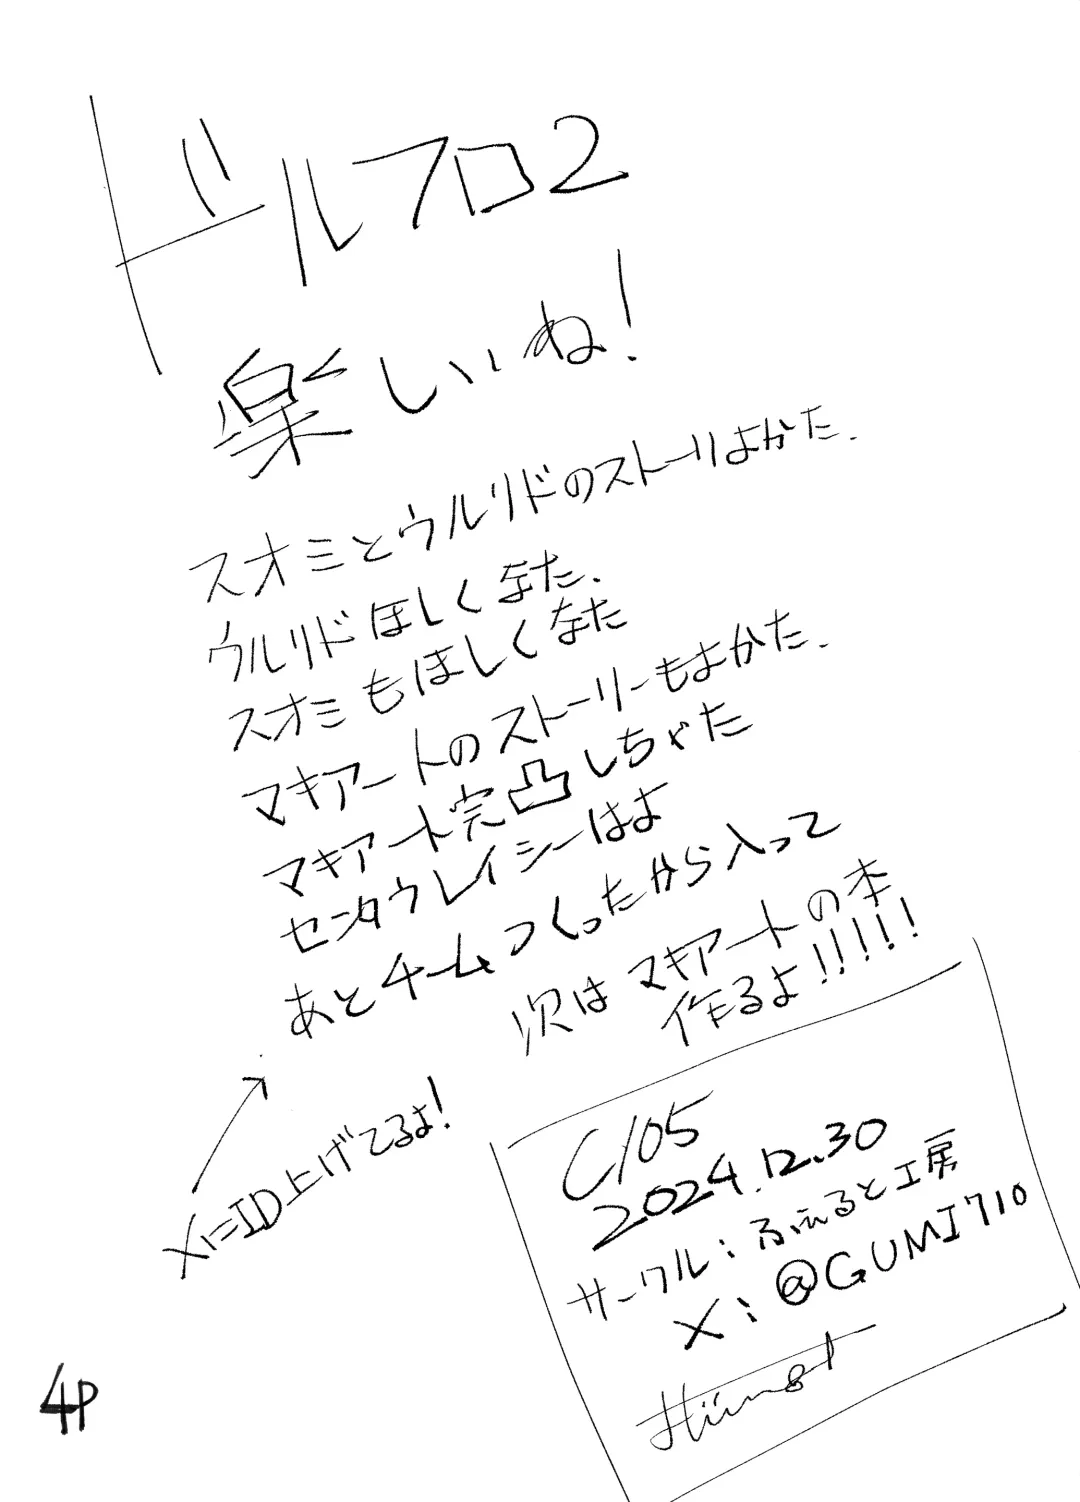 ドルフロ2
楽しいね!
スオミとウルリドのストーリよかた.
ウルリドほしくなた.
スオミもほしくなた
マキアートのストーリーもよかた.
マキアート完凸しちゃた
センタウレイシーはよ
あとチームつくったから入って
次はマキアートの本
作るよ!!!!!
XにID上げてるよ!
C105
2024.12.30
サークル:ふえると工房
X:@GUMI710
4P